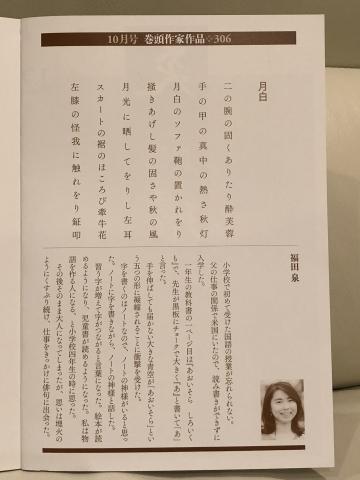 10月号 巻頭作家作品 306
月白
福田 泉
二の腕の固くありたり酔芙蓉
手の甲の真中の熱さ秋灯
月白のソファ鞄の置かれをり
掻きあげし髪の固さや秋の風
月光に晒してをりし左耳
スカートの裾のほころび牽牛花
左膝の怪我に触れをり鉦叩
小学校で初めて受けた国語の授業が忘れられない。
父の仕事の関係で米国にいたので、読み書きができずに
入学した。
一年生の教科書の一ページ目は『あおいそら しろいく
も』で、先生が黒板にチョークで大きく『あ』と書いて「あ」
と言った。
手を伸ばしても届かない大きな青空が「あおいそら」とい
う五つの形に凝縮されることに衝撃を受けた。
字を書くのはノートなので、ノートの神様がいると思っ
た。ノートに字を書きながら、ノートの神様と話した。
習う字が増えて字がつながると言葉になった。絵本が読
めるようになり、児童書が読めるようになった。私は物
語を作る人になる、と小学校四年生の時に思った。
その後そのまま大人になってしまったが、思いは埋火の
ようにくすぶり続け、仕事をきっかけに俳句に出会った。